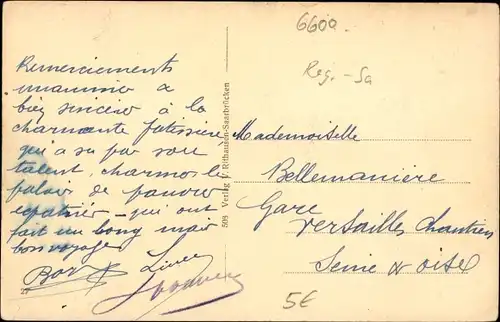 6600
Reg. - Sa
Remerciements
unanimes &
bien sincère à la
charmante patissière
qui a su par son
talent, charmer le
palais de pauvre
qui ont
fait un long
bon voyage
508 Verlag Rithausen-Saarbrücken
Mademoiselle
Bellemanière
Gare
Versailles Chantiers
Seine & Oise
5€